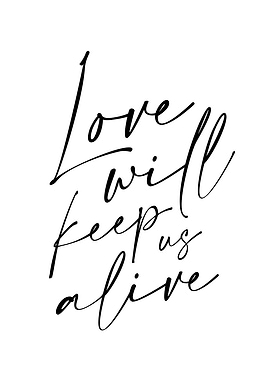 Love
will
keep
us
alive